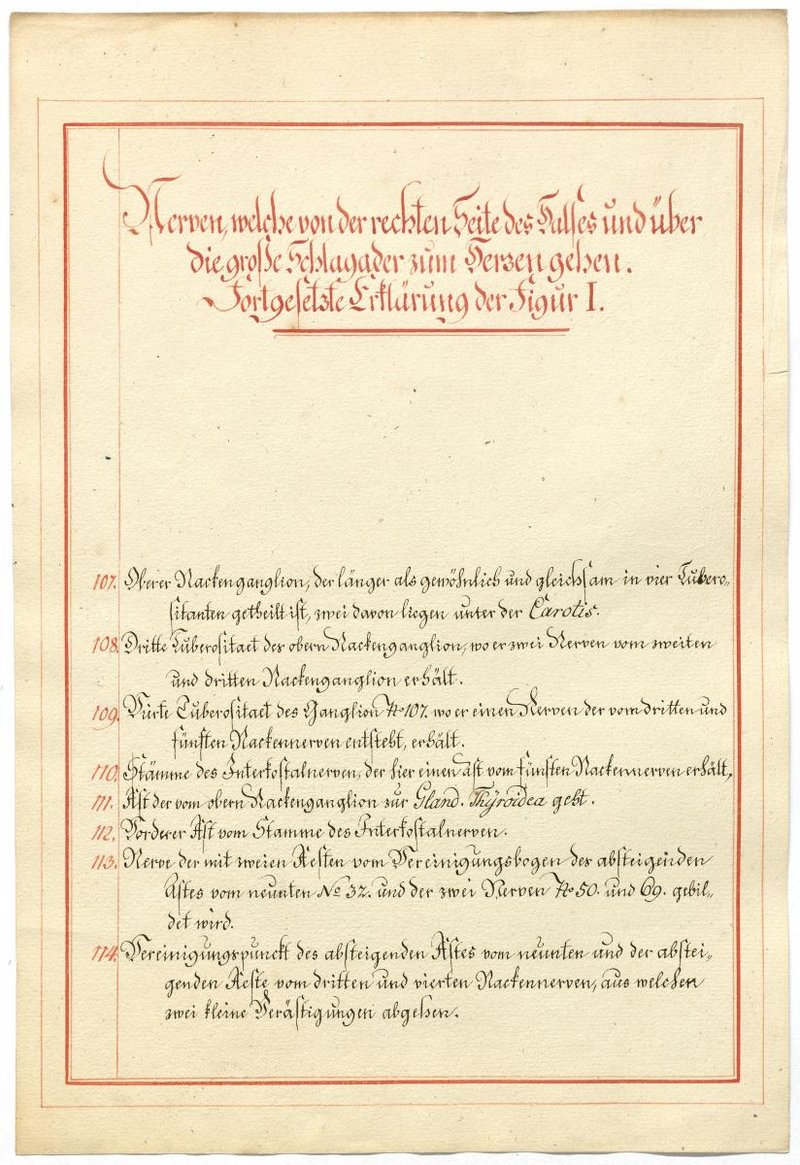 Nerven, welche von der rechten Seite des Halses und über
die große Schlagader zum Herzen gehen.
Fortgesetzte Erklärung der Figur I.
107. Oberer Nackenganglion, der länger als gewöhnlich und gleichsam in vier Tubero-
sitanten getheilt ist, zwei davon liegen unter der Carotis.
108. Dritte Tuberositaet des obern Nackenganglion, wo er zwei Nerven vom zweiten
und dritten Nackenganglion erhält.
109. Vierte Tuberositaet des Ganglion No 107. wo er einen Nerven der vom dritten und
fünften Nackennerven entsteht, erhält.
110. Stämme des Interkostalnerven, der hier einen Ast vom fünften Nackennerven erhält,
111. Ast der vom obern Nackenganglion zur Gland. Thÿroidea geht.
112. Vorderer Ast vom Stamme des Interkostalnerven.
113. Nerve der mit zweien Aesten vom Vereinigungsbogen des absteigenden
Astes vom neunten No 32. und der zwei Nerven No 50. und 69. gebil-
det wird.
114. Vereinigungspunckt des absteigenden Astes vom neunten und der abstei-
genden Aeste vom dritten und vierten Nackennerven, aus welchen
zwei kleine Verästigungen abgehen.